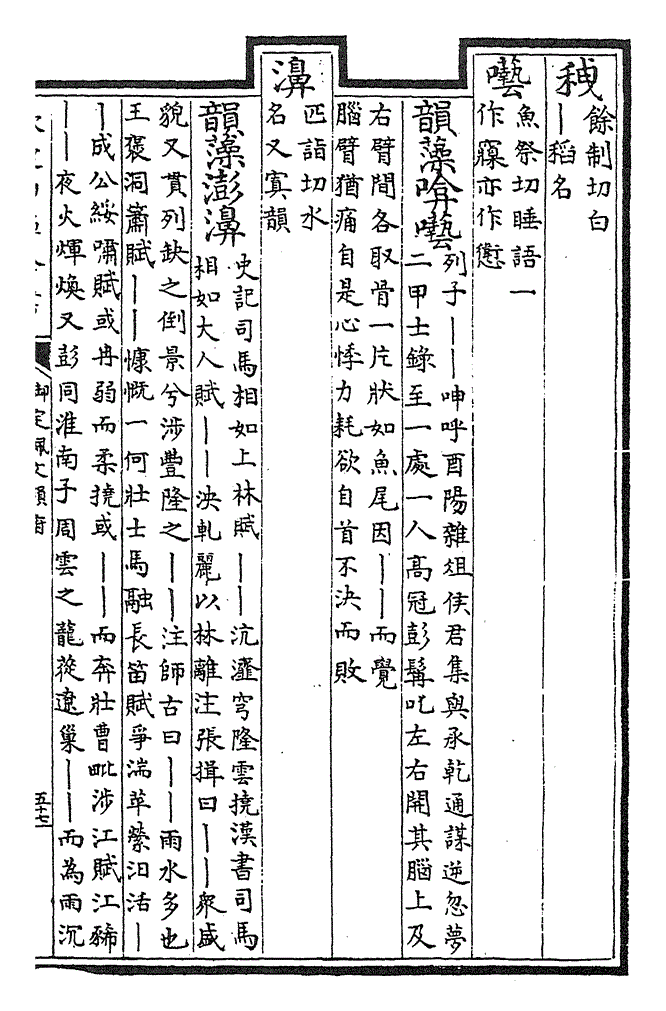 䄿
餘制切白
―稻名
囈
魚祭切睡語一
作寱亦作
韻藻啽囈
列子――呻呼酉陽雜俎侯君集與承乾通謀逆忽夢
二甲士錄至一處一人髙冠彭髯叱左右開其腦上及
右臂間各取骨一片狀如魚尾因――而覺
腦臂猶痛自是心悸力耗欲自首不決而敗
濞
匹詣切水
名又寘韻
韻藻澎濞
史記司馬相如上林賦――沆瀣穹隆雲撓漢書司馬
相如大人賦――泱軋麗以林離注張揖曰――衆盛
貌又貫列缺之倒景兮涉豐隆之――注師古曰――雨水多也
王褒洞簫賦――慷慨一何壯士馬融長笛賦爭湍苹縈汨活―
―成公綏嘯賦或冉弱而柔撓或――而奔壯曹毗涉江賦江豨
――夜火煇煥又彭同淮南子周雲之龍蓯遼巢――而為雨沉
御定佩文韻府
五十七